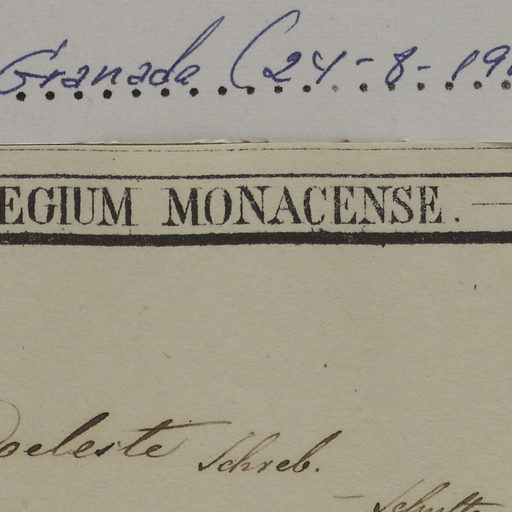 Granada (24-8-19
EGIUM MONACENSE.
coeleste Schreb.